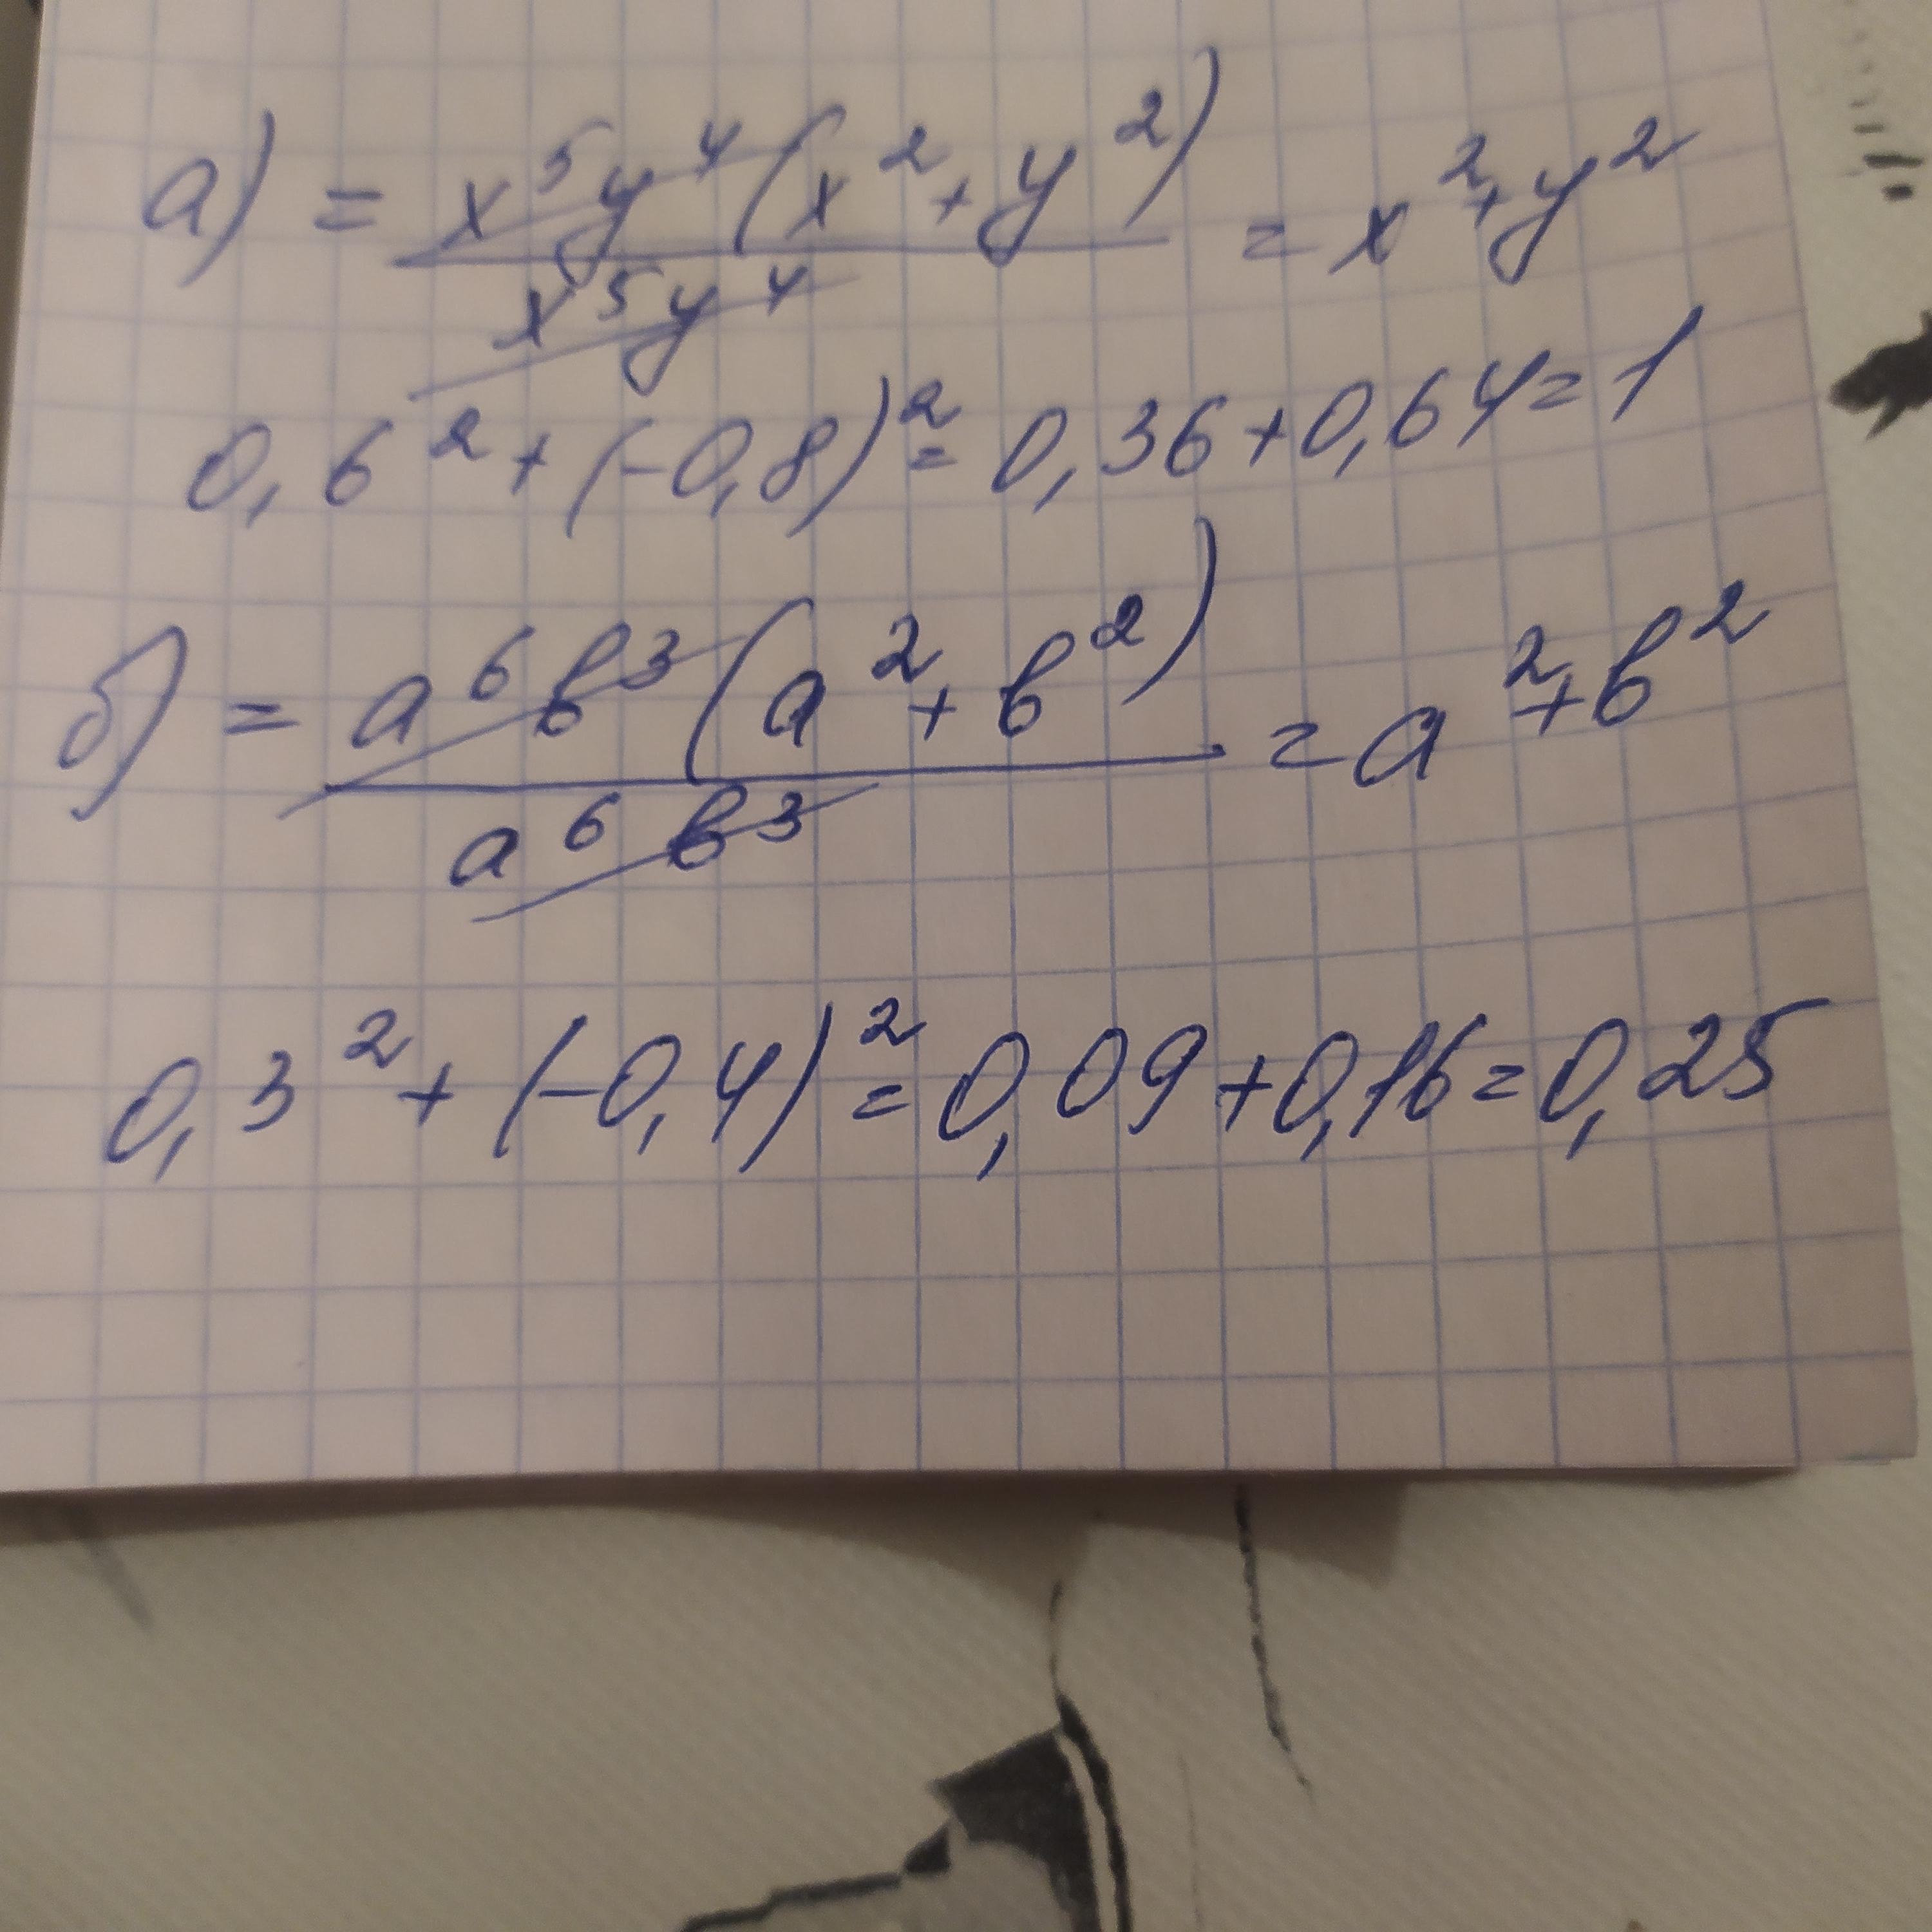 а) = x⁵y⁴(x²+y²) / x⁵y⁴ = x²+y²
0,6²+(-0,8)²=0,36+0,64=1
б) = a⁶b³(a²+b²) / a⁶b³ = a²+b²
0,3²+(-0,4)²=0,09+0,16=0,25